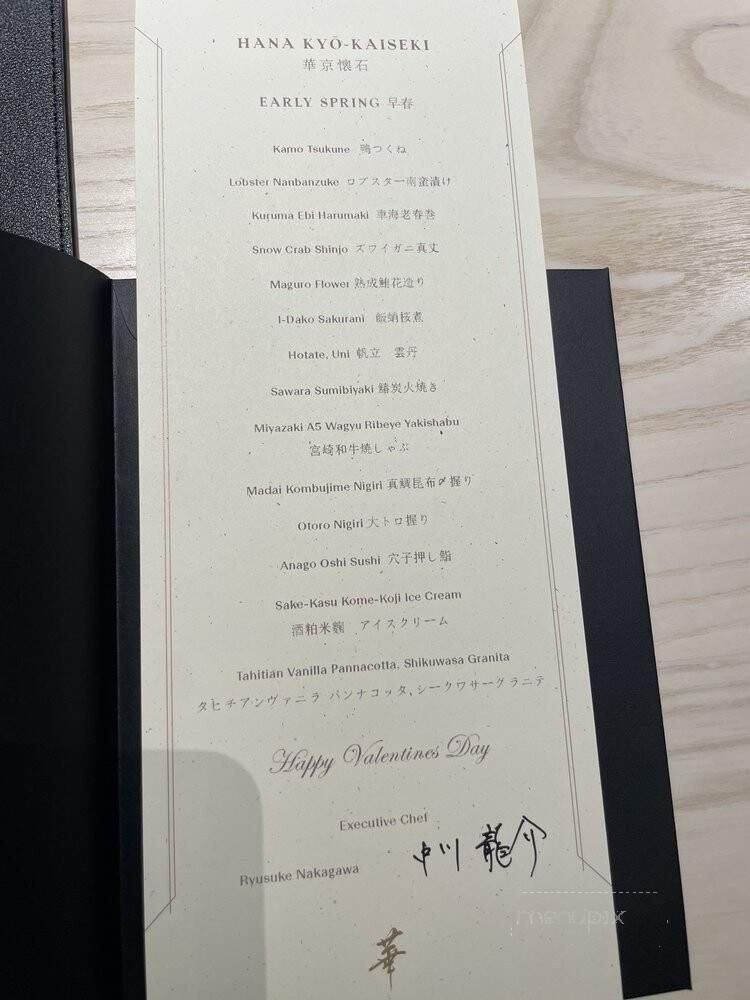 HANA KYŌ-KAISEKI
華京懐石
EARLY SPRING 早春
Kamo Tsukune 鴨つくね
Lobster Nanbanzuke ロブスター南蛮漬け
Kuruma Ebi Harumaki 車海老春巻
Snow Crab Shinjo ズワイガニ真丈
Maguro Flower 熟成鮪花造り
I-Dako Sakurani 飯蛸桜煮
Hotate, Uni 帆立 雲丹
Sawara Sumibiyaki 鰆炭火焼き
Miyazaki A5 Wagyu Ribeye Yakishabu
宮崎和牛焼しゃぶ
Madai Kombujime Nigiri 真鯛昆布〆握り
Otoro Nigiri 大トロ握り
Anago Oshi Sushi 穴子押し鮨
Sake-Kasu Kome-Koji Ice Cream
酒粕米麴 アイスクリーム
Tahitian Vanilla Pannacotta, Shikuwasa Granita
タヒチアンヴァニラ パンナコッタ, シークワサーグラニテ
Happy Valentines Day
Executive Chef
Ryusuke Nakagawa
中川 龍介
華
menupix